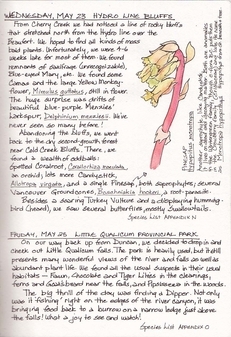 WEDNESDAY, MAY 23 HYDRO LINE BLUFFS
From Cherry Creek we had noticed a line of rocky bluffs
that stretched north from the Hydro line over the
Beaufort. We hoped to find all kinds of moss
bald plants. Unfortunately, we were 4-6
weeks late for most of them. We found
remnants of Saxifrage (unrecognizable),
Blue-eyed Mary, etc. We found some
Camas and the large Yellow Monkey-
flower, Mimulus guttatus, still in flower.
The happy surprise was drifts of
beautiful blue-purple Menzies'
Larkspur, Delphinium menziesii. We've
never seen so many before!
Abandoning the bluffs, we went
back to the dry second-growth forest
near Cold Creek Bluffs. There, we
found a wealth of oddballs:
Spotted Coralroot, Corallorhiza maculata,
an orchid, lots more Candystick,
Allotropa virgata, and a single Pinesap, both saprophytes, several
Vancouver Groundcones, Boschniakia hookeri, a root-parasite.
Besides a soaring Turkey Vulture and a displaying humming-
bird (heard), we saw several butterflies, mostly Swallowtails.
SPECIES LIST APPENDIX N
FRIDAY, MAY 25 LITTLE QUALICUM PROVINCIAL PARK
On our way back up from Duncan, we decided to drop in and
check out Little Qualicum Falls. The park is heavily used, but it still
presents many wonderful views of the river and falls as well as
abundant plant life. We found all the usual suspects in their usual
habitats - Fawn, Chocolate and Tiger Lilies in the clearings,
ferns and Goatsbeard near the falls, and Pipsissewa in the woods.
The big thrill of the day was finding a Dipper. Not only
was it fishing right on the edges of the river canyon, it was
bringing food back to a burrow on a narrow ledge just above
the falls! What a joy to see and watch!
SPECIES LIST APPENDIX O